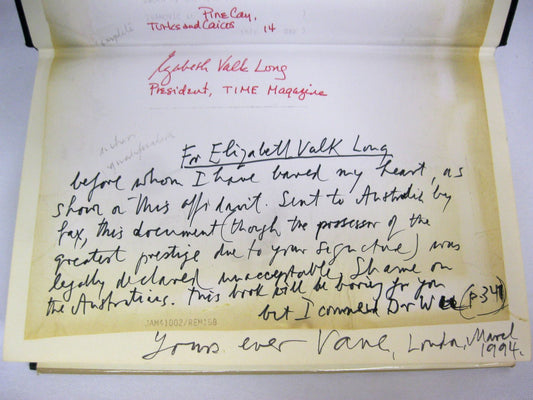 complete
Pine Cay,
Turks and Caicos 14
Elizabeth Valk Long
President, TIME Magazine
For Elizabeth Valk Long
before whom I have bared my heart, as
shown on this affidavit. Sent to Australia by
fax, this document (though the possessor of the
greatest prestige due to your signature) was
legally declared unacceptable, Shame on
the Australians. This book will be boring for you
but I commend Dr W (p 341)
JAM41002/REM158
Yours ever Vane, London, March
1994.